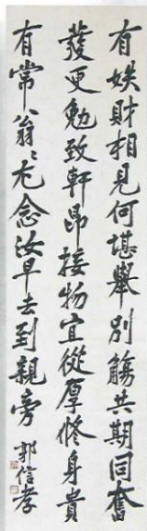 有娱財相見何堪舉別觴共期同奮
發更勉致軒昂接物宜從厚修身貴
有常翁翁尤念汝早去到親旁 郭信孝